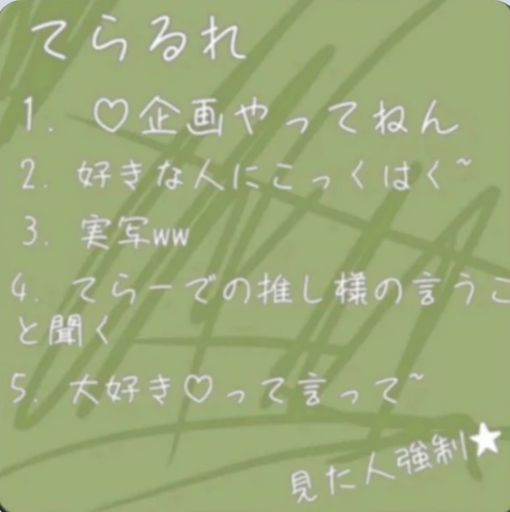 てらるれ
1. ♡企画やってねん
2. 好きな人にこっくはく~
3. 実写ww
4. てらーでの推し様の言うこ
と聞く
5. 大好き♡って言って~
見た人強制★